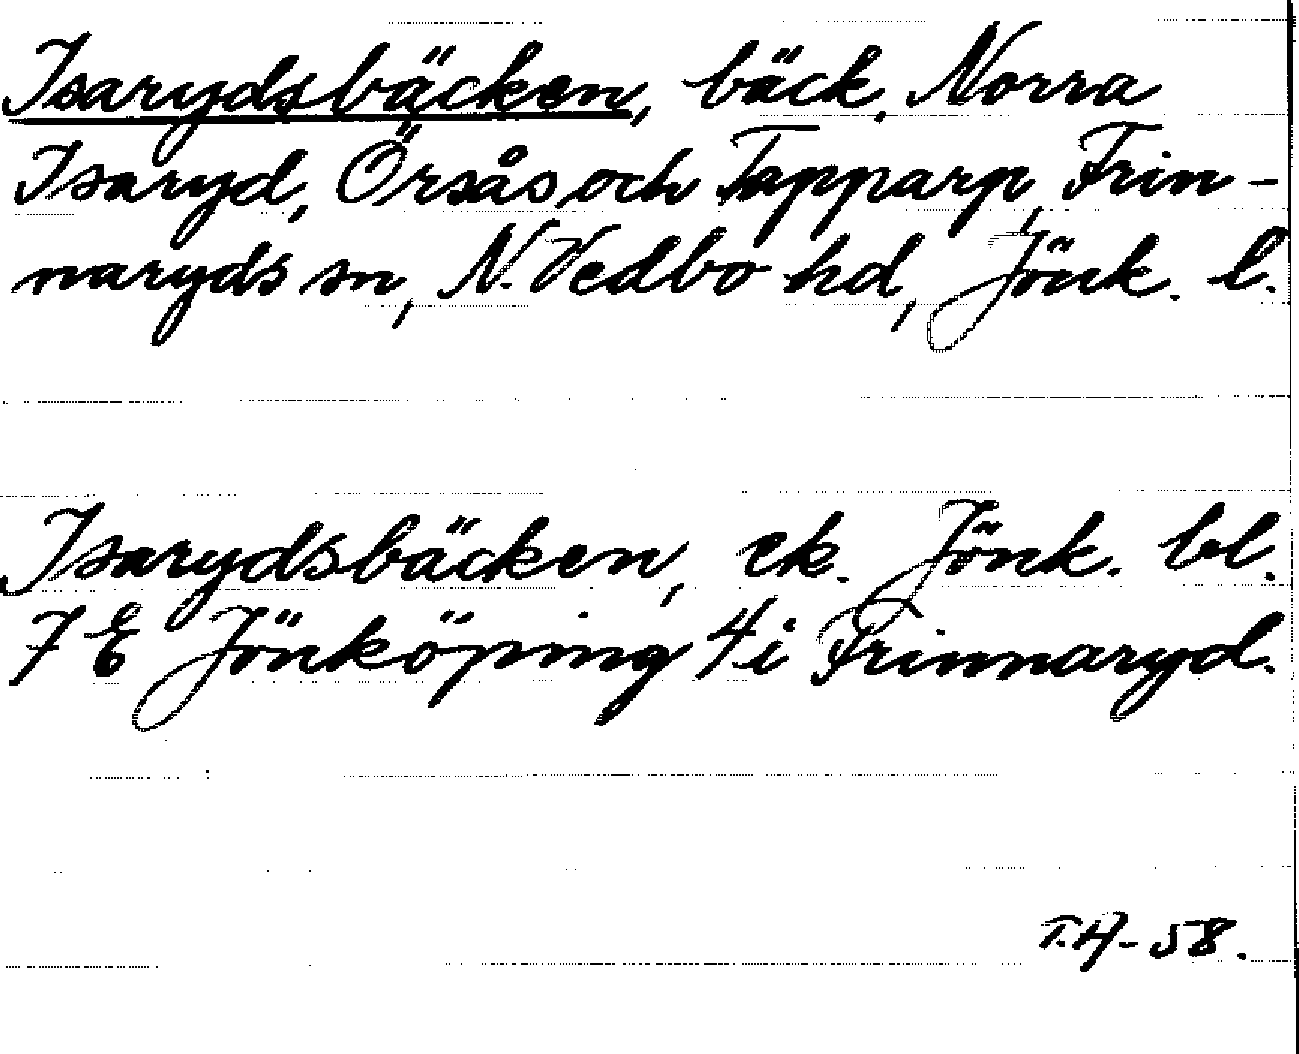 Isarydsbäcken, bäck, Norra
Isaryd, Örsås och Tapparp, Frin-
naryds sn, N. Vedbo hd, Jönk. l.
Isarydsbäcken, ek. Jönk. bl.
7 E Jönköping 4i Frinnaryd.
T.H-58.